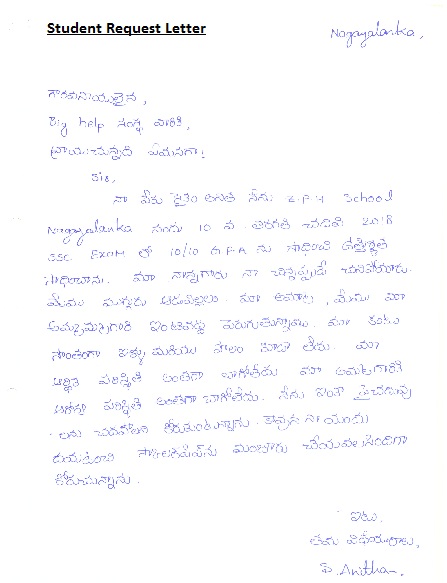 Student Request Letter
Nagayalanka,
గౌరవనీయులైన,
Big help సంస్థ వారికి,
వ్రాయుచున్నది ఏమనగా!
Sir,
నా పేరు అనిత నేను Z.P.H School
Nagayalanka నందు 10 వ తరగతి చదివి 2018
SSC Exam లో 10/10 GPA ను సాధించి ఉత్తీర్ణత
సాధించాను. మా నాన్నగారు నా చిన్నప్పుడే చనిపోయారు.
మేము ముగ్గురు ఆడపిల్లలు. మా అమ్మ, మేము మా
అమ్మమ్మగారి ఇంటివద్ద పెరుగుతున్నాము. మాకంటు
సొంతంగా ఇల్లు మరియు పొలం కూడా లేదు. మా
ఆర్థిక పరిస్థితి అంతగా బాగోలేదు మా అమ్మగారి
ఆరోగ్య పరిస్థితి అంతగా బాగోలేదు. నేను ఇంకా పైచదువు
లను చదవాలని కోరుకుంటున్నాను. కావున నా యందు
దయవుంచి స్కాలర్షిప్‌ను మంజూరు చేయవలసిందిగా
కోరుచున్నాను.
ఇట్లు,
తమ విధేయురాలు,
Anitha.